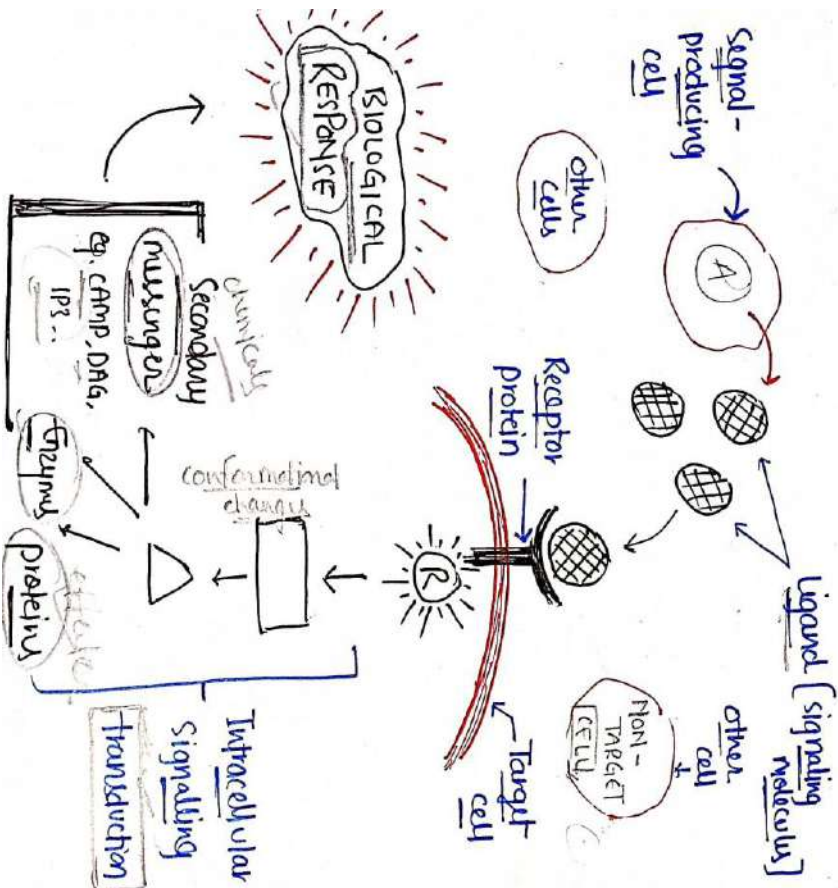 Segnal-
producing
cell
A
other
cells
Ligand [signaling
molecules]
other
cell
NON-
TARGET
CELL
Receptor
protein
Target
cell
R
conformational
changes
Intracellular
Signalling
transduction
chemicals
Secondary
messinger
eg. CAMP, DAG,
IP3..
Enzymes
proteins
BIOLOGICAL
RESPONSE